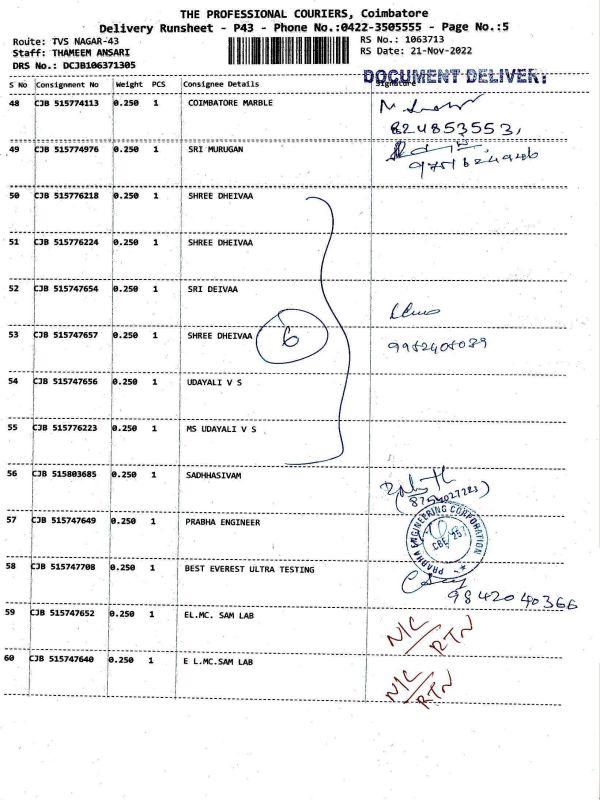 THE PROFESSIONAL COURIERS, Coimbatore
Delivery Runsheet - P43 - Phone No.:0422-3505555 - Page No.:5
Route: TVS NAGAR-43 RS No.: 1063713
Staff: THAMEEM ANSARI RS Date: 21-Nov-2022
DRS No.: DCJB106371305
DOCUMENT DELIVERY
S No Consignment No Weight PCS Consignee Details Signature
48 CJB 515774113 0.250 1 COIMBATORE MARBLE
824853553,
49 CJB 515774976 0.250 1 SRI MURUGAN
50 CJB 515776218 0.250 1 SHREE DHEIVAA
51 CJB 515776224 0.250 1 SHREE DHEIVAA
52 CJB 515747654 0.250 1 SRI DEIVAA
53 CJB 515747657 0.250 1 SHREE DHEIVAA 6
9952405039
54 CJB 515747656 0.250 1 UDAYALI V S
55 CJB 515776223 0.250 1 MS UDAYALI V S
56 CJB 515803685 0.250 1 SADHHASIVAM
57 CJB 515747649 0.250 1 PRABHA ENGINEER
PRABHA ENGINEERING CORPORATION
58 CJB 515747708 0.250 1 BEST EVEREST ULTRA TESTING
9842040366
59 CJB 515747652 0.250 1 EL.MC. SAM LAB N/C
RTN
60 CJB 515747640 0.250 1 E L.MC.SAM LAB N/C
RTN